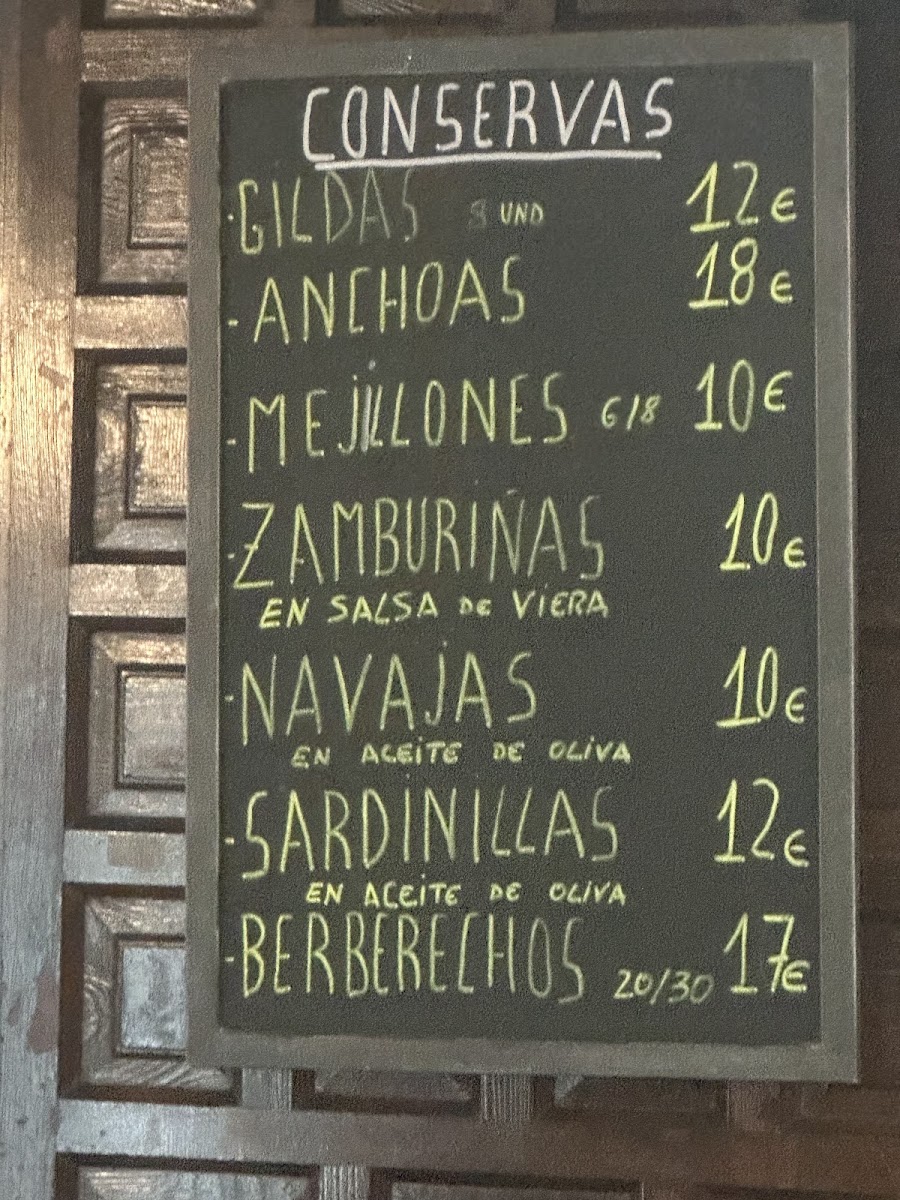 CONSERVAS
·GILDAS 8 UND 12€
-ANCHOAS 18€
-MEJILLONES 6/8 10€
-ZAMBURIÑAS 10€
EN SALSA DE VIERA
-NAVAJAS 10€
EN ACEITE DE OLIVA
-SARDINILLAS 12€
EN ACEITE DE OLIVA
-BERBERECHOS 20/30 17€